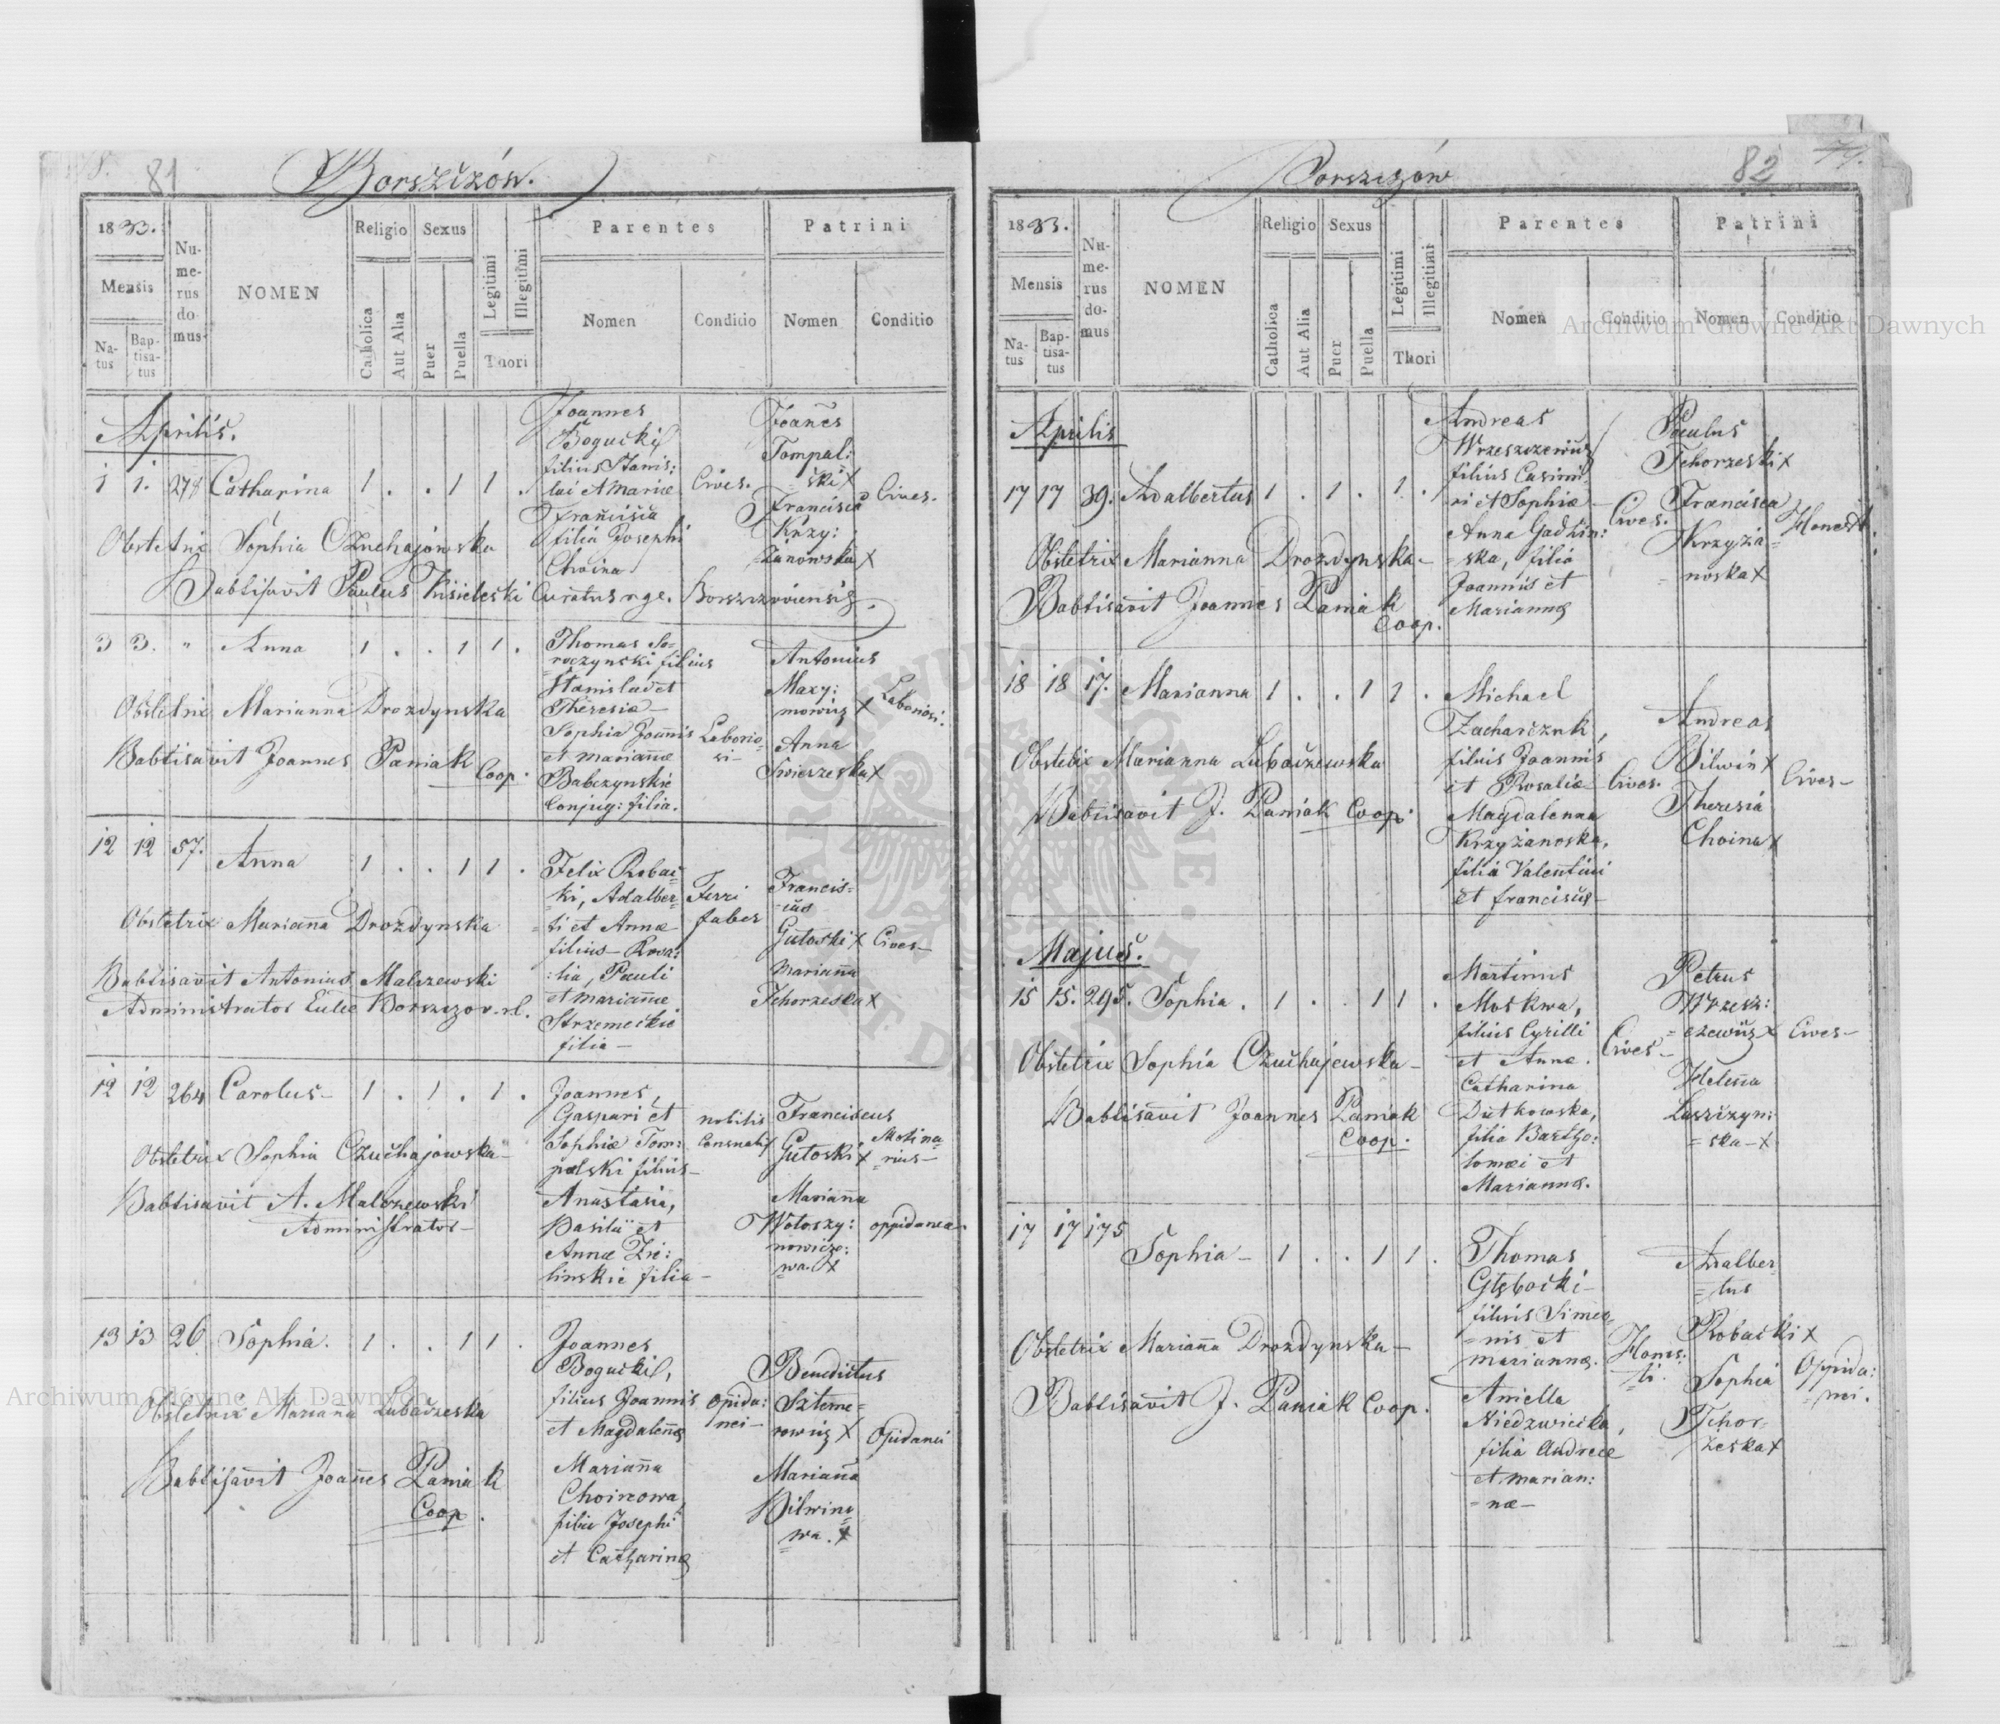 81
Borszczów.
1833.
Mensis
Na-
tus
Bap-
tisa-
tus
Nu-
me-
rus
do-
mus
NOMEN
Religio
Catholica
Aut Alia
Sexus
Puer
Puella
Legitimi
Illegitimi
Thori
Parentes
Nomen
Conditio
Patrini
Nomen
Conditio
Aprilis.
1 1. 278 Catharina 1 . . 1 1 .
Joannes
Bogucki
filius Stanis:
lai et Mariæ
Francisca
filia Josephi
Choina
Cives.
Joañes
Tompal:
ski X
Francisca
Krzy:
żanowska X
Cives.
Obstetrix Sophia Czuchajowska
Babtisavit Paulus Kisieleski Curatus rge. Borszczoviensis.
3 3. " Anna 1 . . 1 1 .
Thomas So-
roczynski filius
Stanislai et
Theresiæ
Sophia Joannis
et Mariañæ
Babczynskie
Conjug: filia.
Laborio-
si
Antonius
Maxy:
mowicz X
Anna
Swierzeska X
Laboriosi.
Obstetrix Marianna Drozdynska
Babtisavit Joannes Paniak Coop.
12 12 57. Anna 1 . . 1 1 .
Felix Robac-
ki, Adalber-
ti et Annæ
filius - Rosa:
:lia, Pauli
et Mariañæ
Strzemeckie
filia -
Ferri
faber
Francis-
cus
Gutoski X
Mariañna
Tchorzeska X
Cives
Obstetrix Mariañna Drozdynska
Babtisavit Antonius Malczewski
Administrator Eccle Borszczov. r.l.
12 12 264 Carolus 1 . 1 . 1 .
Joannes,
Gaspari et
Sophiæ Tom:
palski filius
Anastasia,
Basilii et
Annæ Zie:
linskie filia
nobilis
Consualis
Franciscus
Gutoski X
Marianna
Wołoszy:
nowicze:
wa. X
Molina-
rius
oppidanea
Obstetrix Sophia Czuchajowska
Babtisavit A. Malczewski
Administrator
13 13 26 Sophia. 1 . . 1 1 .
Joannes
Bogucki,
filius Joannis
et Magdalenæ
Mariañna
Choinowa,
filia Josephi
et Catharinæ
opida:
nei
Benedictus
Szteme-
rowicz X
Mariañna
Bilwino-
wa. X
opidanei
Obstetrix Mariana Lubaczeska
Babtisavit Joañes Paniak
Coop.
82
Borszczów
1833.
Mensis
Na-
tus
Bap-
tisa-
tus
Nu-
me-
rus
do-
mus
NOMEN
Religio
Catholica
Aut Alia
Sexus
Puer
Puella
Legitimi
Illegitimi
Thori
Parentes
Nomen
Conditio
Patrini
Nomen
Conditio
Aprilis
17 17 39. Adalbertus 1 . 1 . 1 .
Andreas
Wrzeszczewicz
filius Casimi-
ri et Sophiæ
Anna Gadzin:
ska, filia
Joannis et
Mariannæ
Cives.
Paulus
Tchorzeski X
Francisca
Krzyza-
noska X
Honesti.
Obstetrix Marianna Drozdynska
Babtisavit Joannes Paniak
Coop.
18 18 17. Marianna 1 . . 1 1 .
Michael
Zacharczuk,
filius Joannis
et Rosaliæ
Magdalenna
Krzyżanoska,
filia Valentini
et Francisc
Cives.
Andreas
Bilwin X
Theresia
Choina X
Cives
Obstetrix Marianna Lubaczewska
Babtisavit J. Paniak Coop.
Majus.
15 15. 295. Sophia. 1 . . 1 1 .
Martinus
Moskwa,
filius Cyrilli
et Annæ.
Catharina
Dutkowska,
filia Bartho:
lomæi et
Mariannæ.
Cives
Petrus
Wrzesz:
czewicz X
Helena
Luszczym:
ska - X
Cives
Obstetrix Sophia Czuchajewska
Babtisavit Joannes Paniak
Coop.
17 17 175
Sophia 1 . . 1 1 .
Thomas
Głębocki
filius Simeo-
nis et
Mariannæ.
Aniella
Niedzwiecka,
filia Andreæ
et Marian:
næ
Hones:
ti.
Adalber-
tus
Robacki X
Sophia
Tchor-
zeska X
Oppida:
nei.
Obstetrix Mariañna Drozdynska
Babtisavit J. Paniak Coop.
Archiwum Główne Akt Dawnych
Archiwum Główne Akt Dawnych
ARCHIWUM GŁÓWNE AKT DAWNYCH